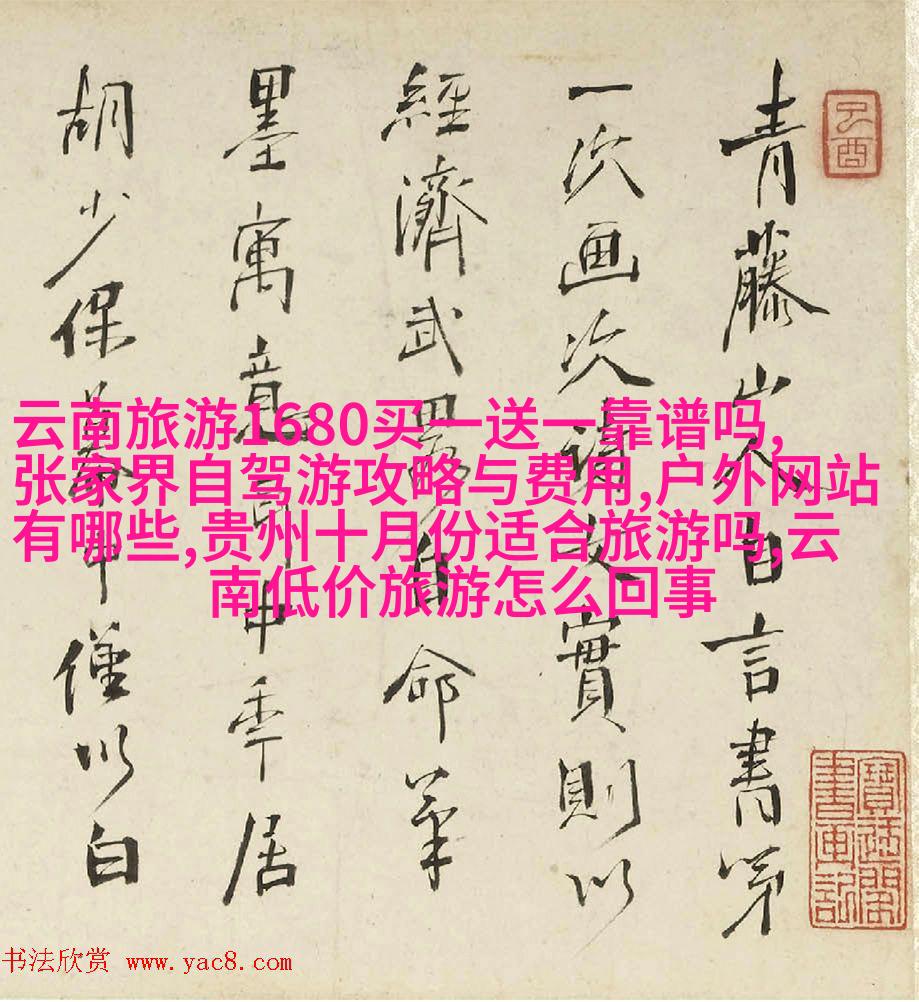 青藤山人自言書第
一次画次詩文實則以
經濟武畧自命筆
墨寓意耳中年居
胡少保幕中僅以白
云南旅游1680买一送一靠谱吗,
张家界自驾游攻略与费用,户外网站
有哪些,贵州十月份适合旅游吗,云
南低价旅游怎么回事
书法欣赏 www.yac8.com